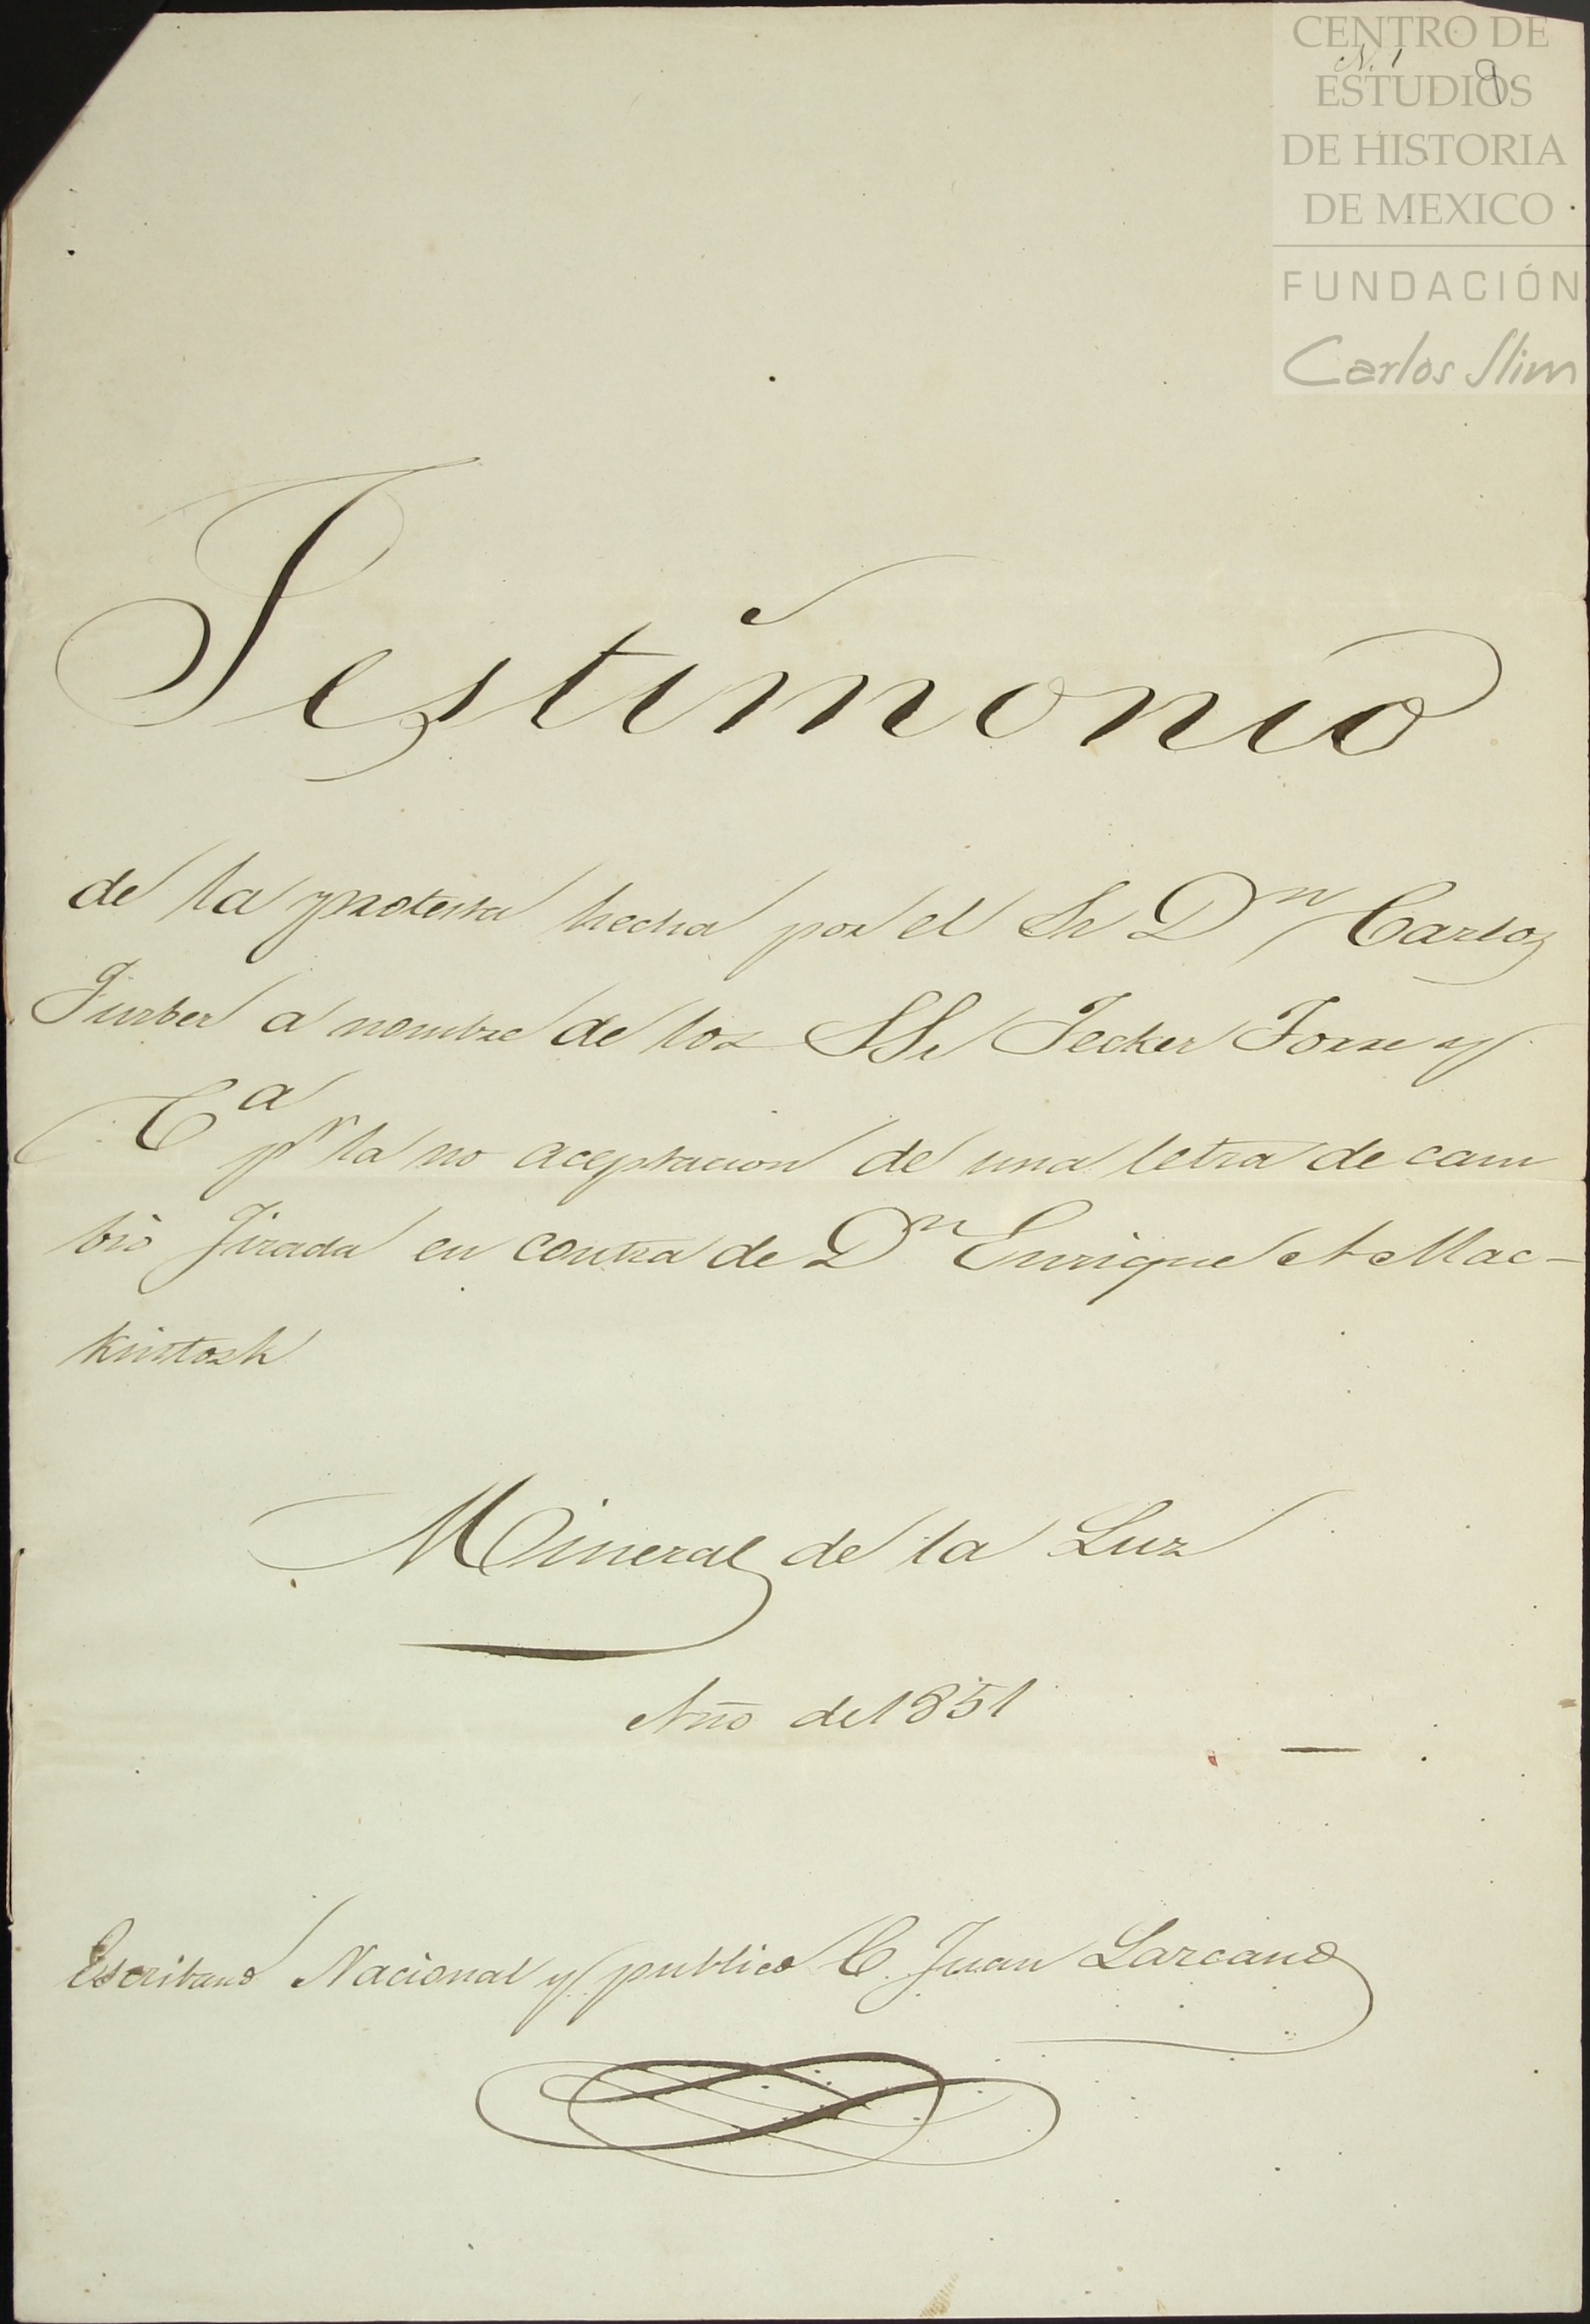 CENTRO DE
ESTUDIOS
DE HISTORIA
DE MEXICO
FUNDACIÓN
Carlos Slim
N. 1
9
Testimonio
de la protesta hecha por el Sr Dn Carlos
Furber a nombre de los SSr Jecker Torre y
Ca pr la no aceptacion de una letra de cam
bio Jirada en contra de Dn Enrique A Mac-
kintosh
Mineral de la Luz
Año de 1851
Escribano Nacional y publico C. Juan Lazcano